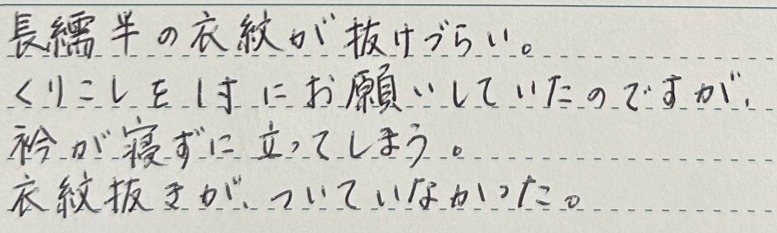 長襦半の衣紋が抜けづらい。
くりこしを1寸にお願いしていたのですが、
衿が寝ずに立ってしまう。
衣紋抜きが、ついていなかった。